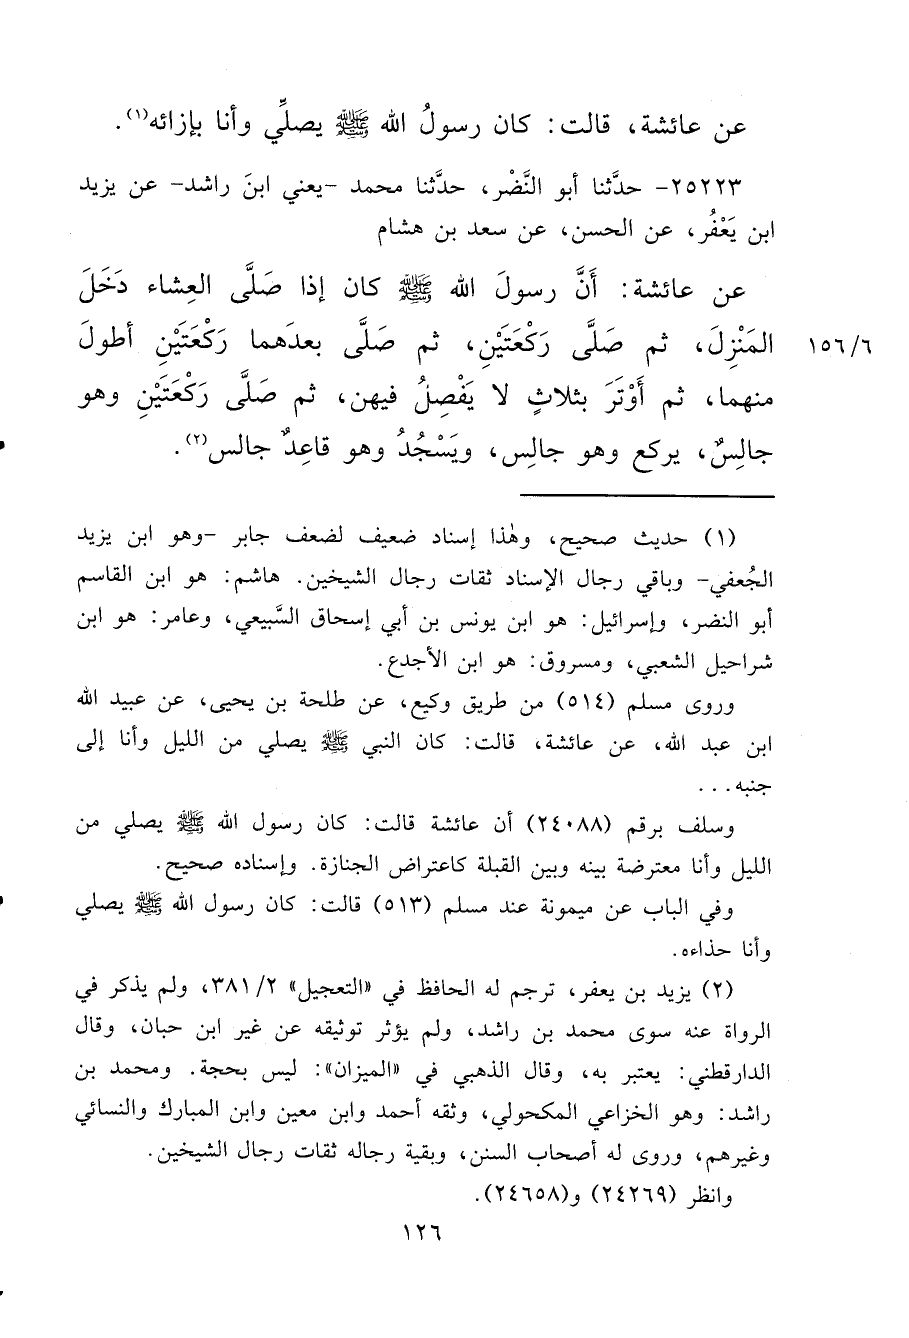 عن عائشة، قالت: كان رسولُ الله ﷺ يصلِّي وأنا بإزائه(١).
٢٥٢٢٣- حدَّثنا أبو النَّضْر، حدَّثنا محمد -يعني ابنَ راشد- عن يزيد
ابن يَعْفُر، عن الحسن، عن سعد بن هشام
عن عائشة: أَنَّ رسولَ الله ﷺ كان إذا صَلَّى العِشاء دَخَلَ
المَنْزِلَ، ثم صَلَّى رَكْعَتَيْنِ، ثم صَلَّى بعدَهما رَكْعَتَيْنِ أطولَ
١٥٦/٦
منهما، ثم أَوْتَرَ بثلاثٍ لا يَفْصِلُ فيهن، ثم صَلَّى رَكْعَتَيْنِ وهو
جالِسٌ، يركع وهو جالِس، ويَسْجُدُ وهو قاعِدٌ جالس(٢).
(١) حديث صحيح، وهٰذا إسناد ضعيف لضعف جابر -وهو ابن يزيد
الجُعفي- وباقي رجال الإسناد ثقات رجال الشيخين. هاشم: هو ابن القاسم
أبو النضر، وإسرائيل: هو ابن يونس بن أبي إسحاق السَّبيعي، وعامر: هو ابن
شراحيل الشعبي، ومسروق: هو ابن الأجدع.
وروى مسلم (٥١٤) من طريق وكيع، عن طلحة بن يحيى، عن عبيد الله
ابن عبد الله، عن عائشة، قالت: كان النبي ﷺ يصلي من الليل وأنا إلى
جنبه...
وسلف برقم (٢٤٠٨٨) أن عائشة قالت: كان رسول الله ﷺ يصلي من
الليل وأنا معترضة بينه وبين القبلة كاعتراض الجنازة. وإسناده صحيح.
وفي الباب عن ميمونة عند مسلم (٥١٣) قالت: كان رسول الله ﷺ يصلي
وأنا حذاءه.
(٢) يزيد بن يعفر، ترجم له الحافظ في «التعجيل» ٣٨١/٢، ولم يذكر في
الرواة عنه سوى محمد بن راشد، ولم يؤثر توثيقه عن غير ابن حبان، وقال
الدارقطني: يعتبر به، وقال الذهبي في «الميزان»: ليس بحجة. ومحمد بن
راشد: وهو الخزاعي المكحولي، وثقه أحمد وابن معين وابن المبارك والنسائي
وغيرهم، وروى له أصحاب السنن، وبقية رجاله ثقات رجال الشيخين.
وانظر (٢٤٢٦٩) و(٢٤٦٥٨).
١٢٦